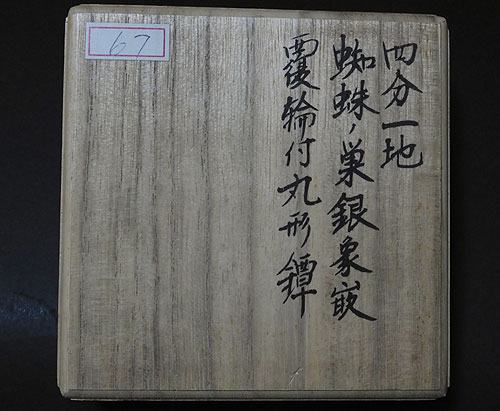 四分一地
蜘蛛ノ巣銀象嵌
覆輪付丸形鐔
67